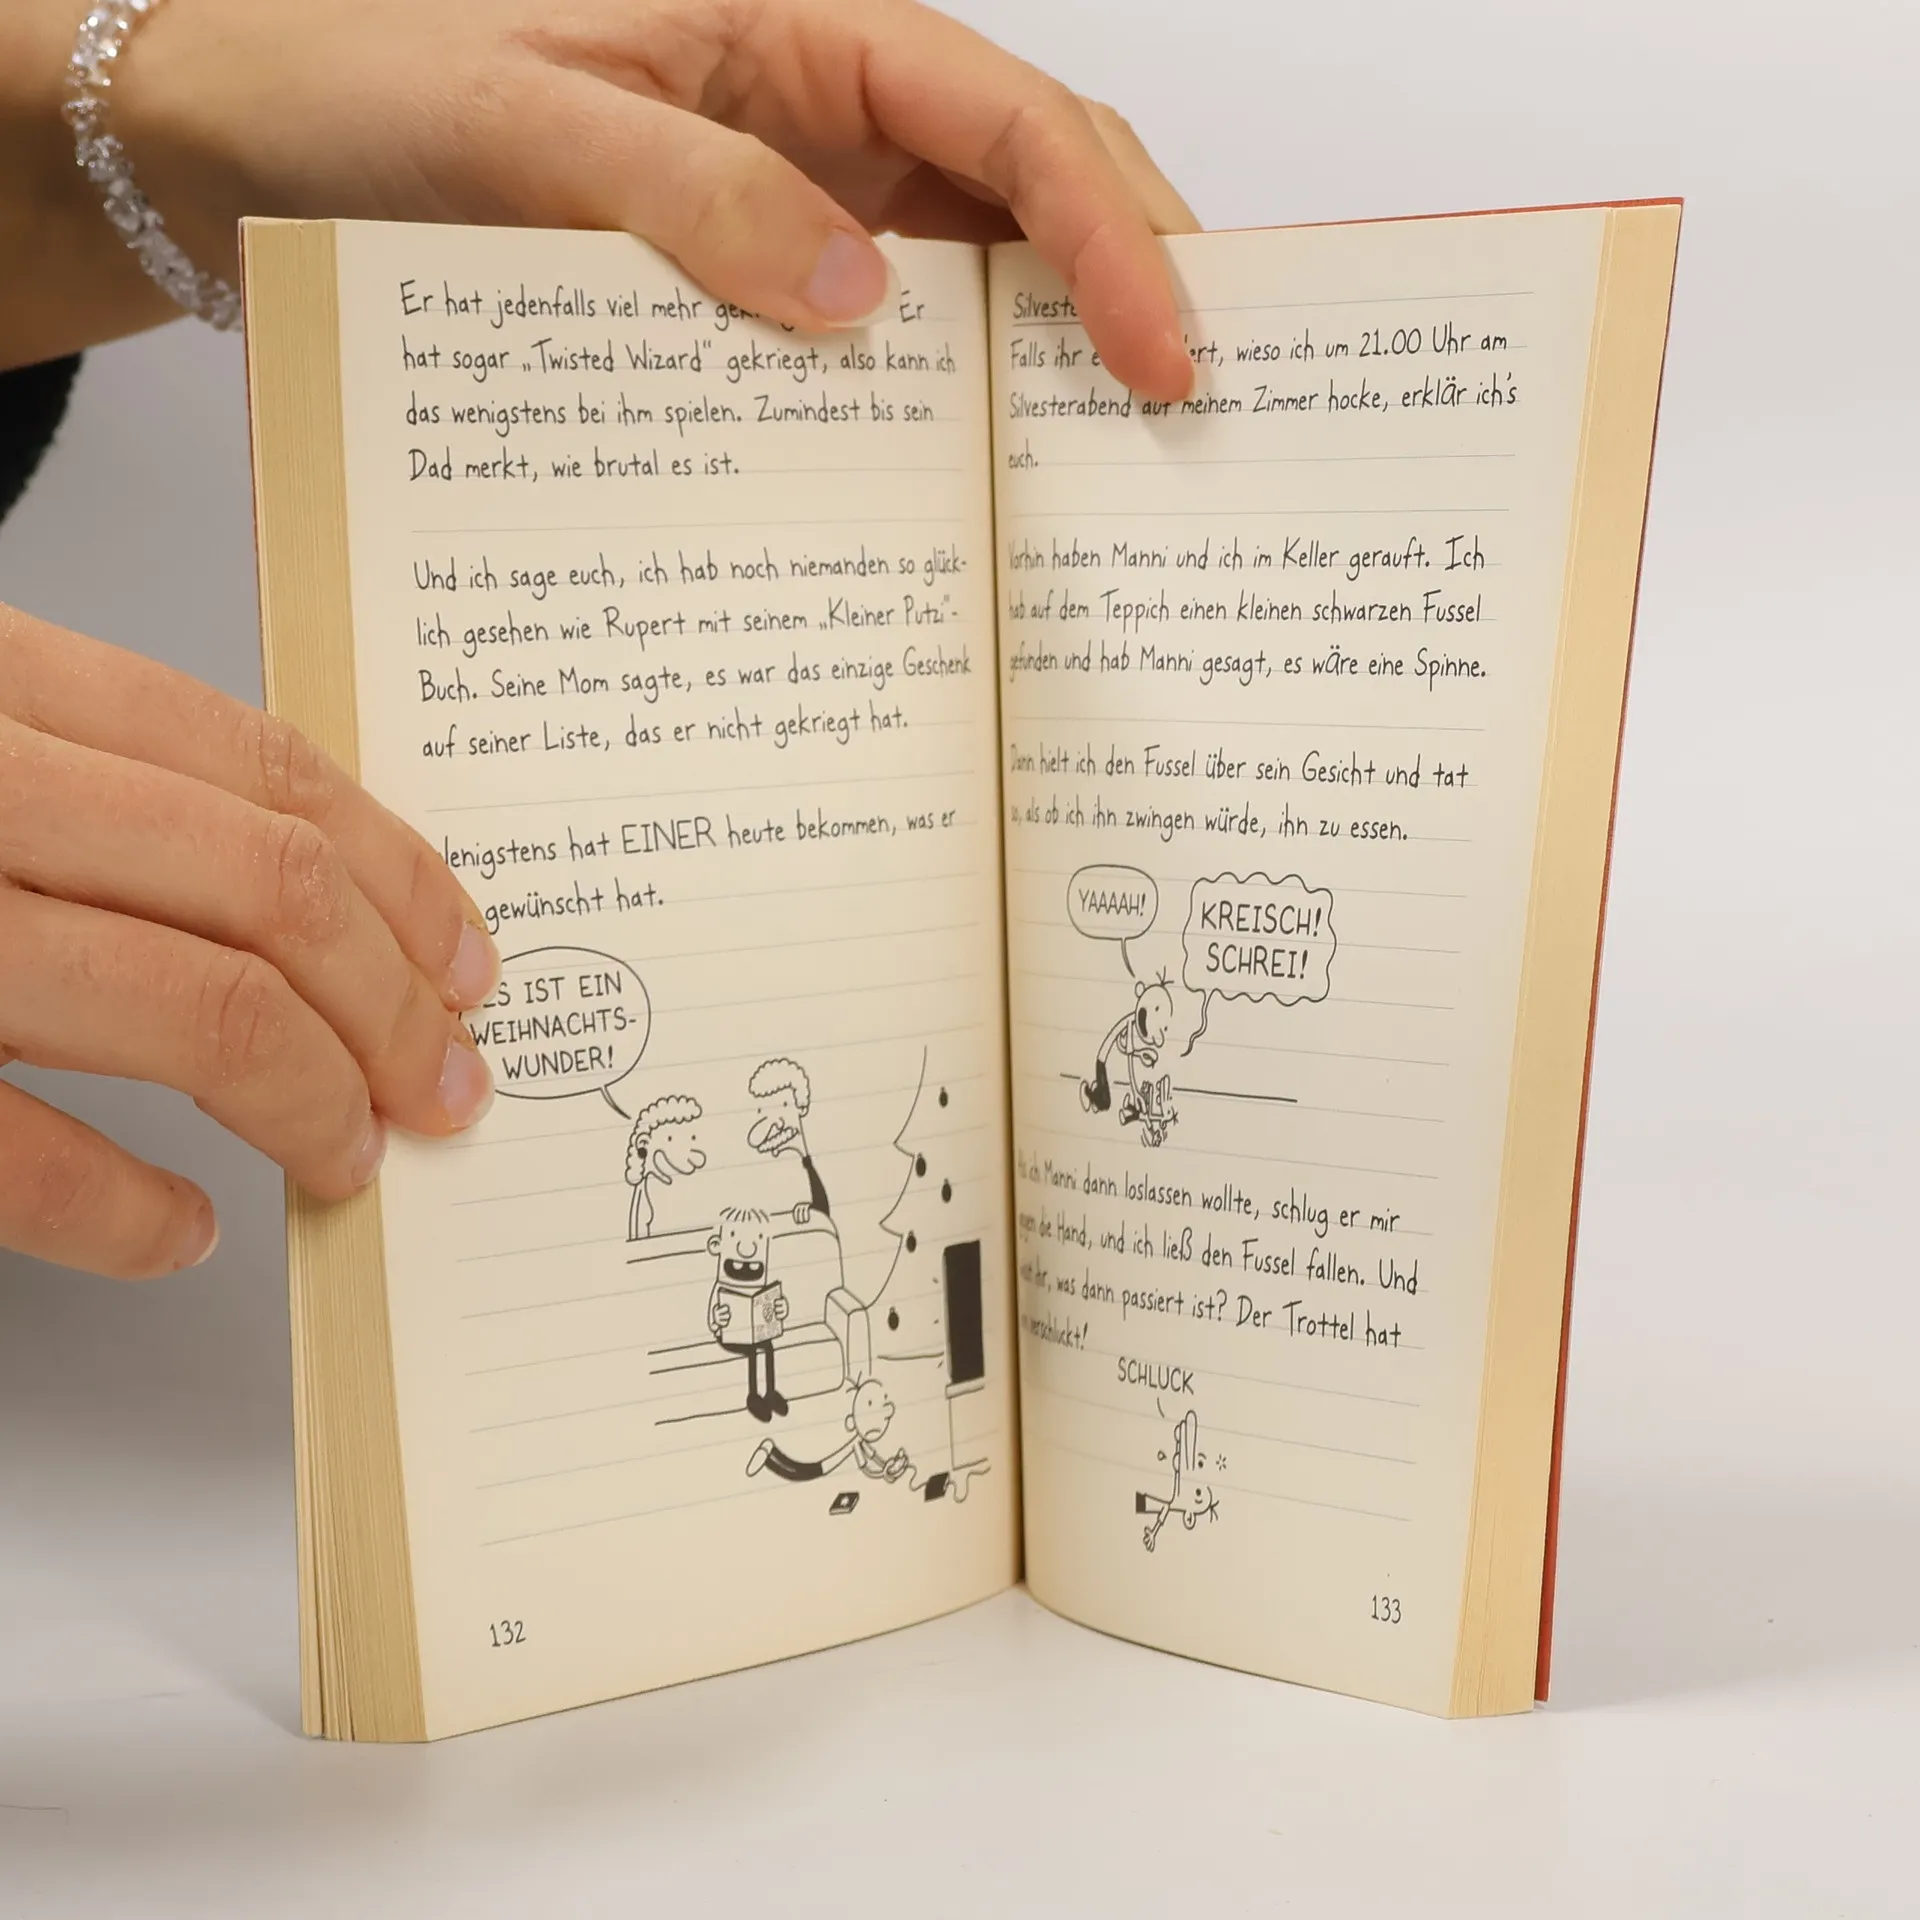 Er hat jedenfalls viel mehr Er
hat sogar „Twisted Wizard" gekriegt, also kann ich
das wenigstens bei ihm spielen. Zumindest bis sein
Dad merkt, wie brutal es ist.
Und ich sage euch, ich hab noch niemanden so glück-
lich gesehen wie Rupert mit seinem „Kleiner Putzi"-
Buch. Seine Mom sagte, es war das einzige Geschenk
auf seiner Liste, das er nicht gekriegt hat.
Wenigstens hat EINER heute bekommen, was er
gewünscht hat.
ES IST EIN
WEIHNACHTS-
WUNDER!
132
Falls ihr wieso ich um 21.00 Uhr am
Silvesterabend auf meinem Zimmer hocke, erklär ich's
euch.
Vorhin haben Manni und ich im Keller gerauft. Ich
hab auf dem Teppich einen kleinen schwarzen Fussel
gefunden und hab Manni gesagt, es wäre eine Spinne.
Dann hielt ich den Fussel über sein Gesicht und tat
so, als ob ich ihn zwingen würde, ihn zu essen.
YAAAAH!
KREISCH!
SCHREI!
Als ich Manni dann loslassen wollte, schlug er mir
gegen die Hand, und ich ließ den Fussel fallen. Und
ihr, was dann passiert ist? Der Trottel hat
verschluckt!
SCHLUCK
133